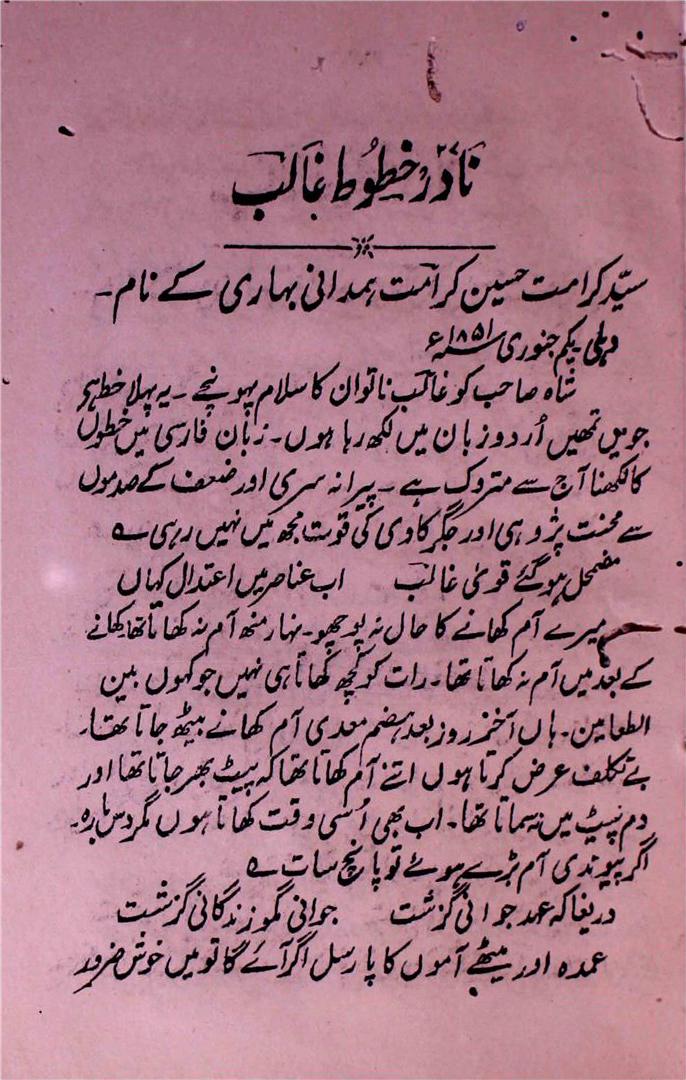 نادر خطوط غالب
سیّد کرامت حسین کرامت ہمدانی بہاری کے نام۔
دہلی یکم جنوری ۱۸۵۱ء
شاہ صاحب کو غالب ناتوان کا سلام پہونچے۔ یہ پہلا خط ہے
جو میں تمھیں اُردو زبان میں لکھ رہا ہوں۔ زبان فارسی میں خطوں
کا لکھنا آج سے متروک ہے۔ پیرانہ سری اور ضعف کے صدموں
سے محنت پژوہی اور جگر کاوی کی قوت مجھ میں نہیں رہی ؎
مضمحل ہو گئے قویٰ غالب اب عناصر میں اعتدال کہاں
میرے آم کھانے کا حال نہ پوچھو۔ نہار منھ آم نہ کھاتا تھا کھانے
کے بعد میں آم نہ کھاتا تھا۔ رات کو کچھ کھاتا ہی نہیں جو کہوں بین
الطعامین۔ ہاں آخر روز بعد ہضم معدی آم کھانے بیٹھ جاتا تھا۔
بے تکلف عرض کرتا ہوں اتنے آم کھاتا تھا کہ پیٹ بھر جاتا تھا اور
دم پیٹ میں نہ سماتا تھا۔ اب بھی اُسی وقت کھاتا ہوں مگر دس بارہ۔
اگر پیوندی آم بڑے ہوئے تو پانچ سات ؎
دریغا کہ عہد جوانی گزشت جوانی مگو زندگانی گزشت
عمدہ اور میٹھے آموں کا پارسل اگر آئے گا تو میں خوش ضرور